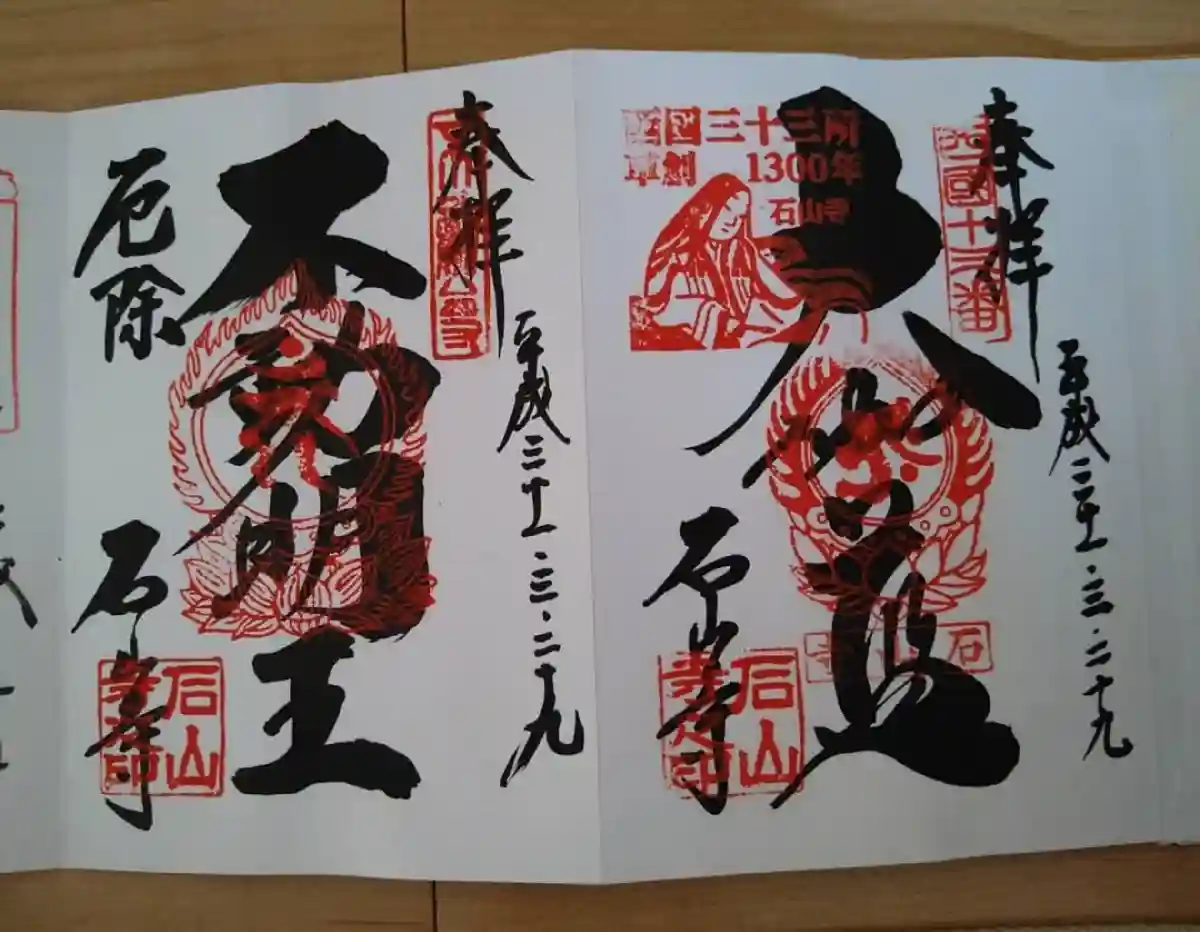 奉拝
西國十三番
平成三十一・三・二十九
西国三十三所
草創 1300年
石山寺
大伽藍
石山寺
石山寺
石山寺之印
奉拝
平成三十一・三・二十九
不動明王
厄除
石山寺
石山寺之印